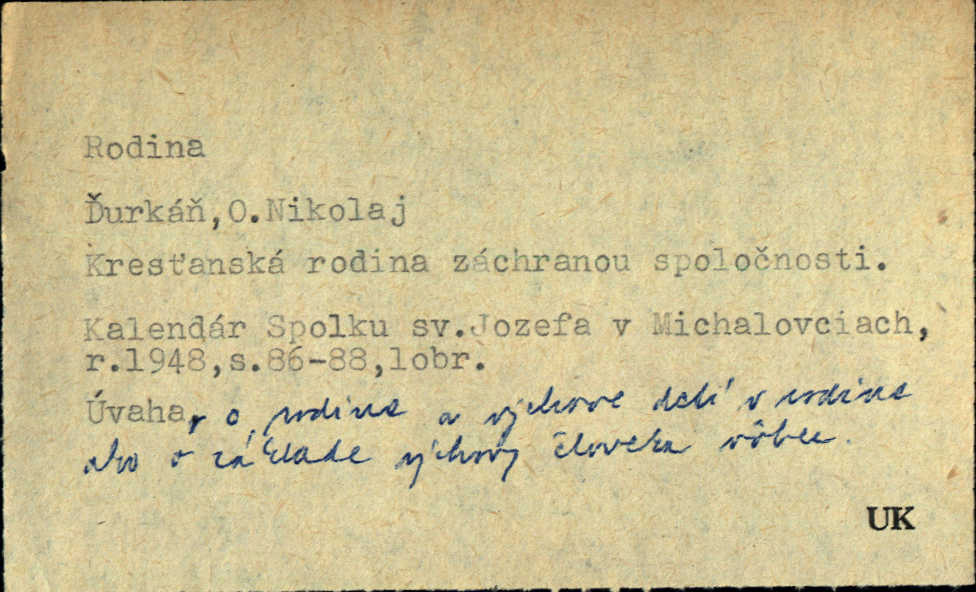 Rodina
Ďurkáň,O.Nikolaj
Kresťanská rodina záchranou spoločnosti.
Kalendár Spolku sv.Jozefa v Michalovciach,
r.1948,s.86-88,lobr.
Úvaha, o rodine a výchove detí v rodine
ako o základe výchovy človeka vôbec.
UK